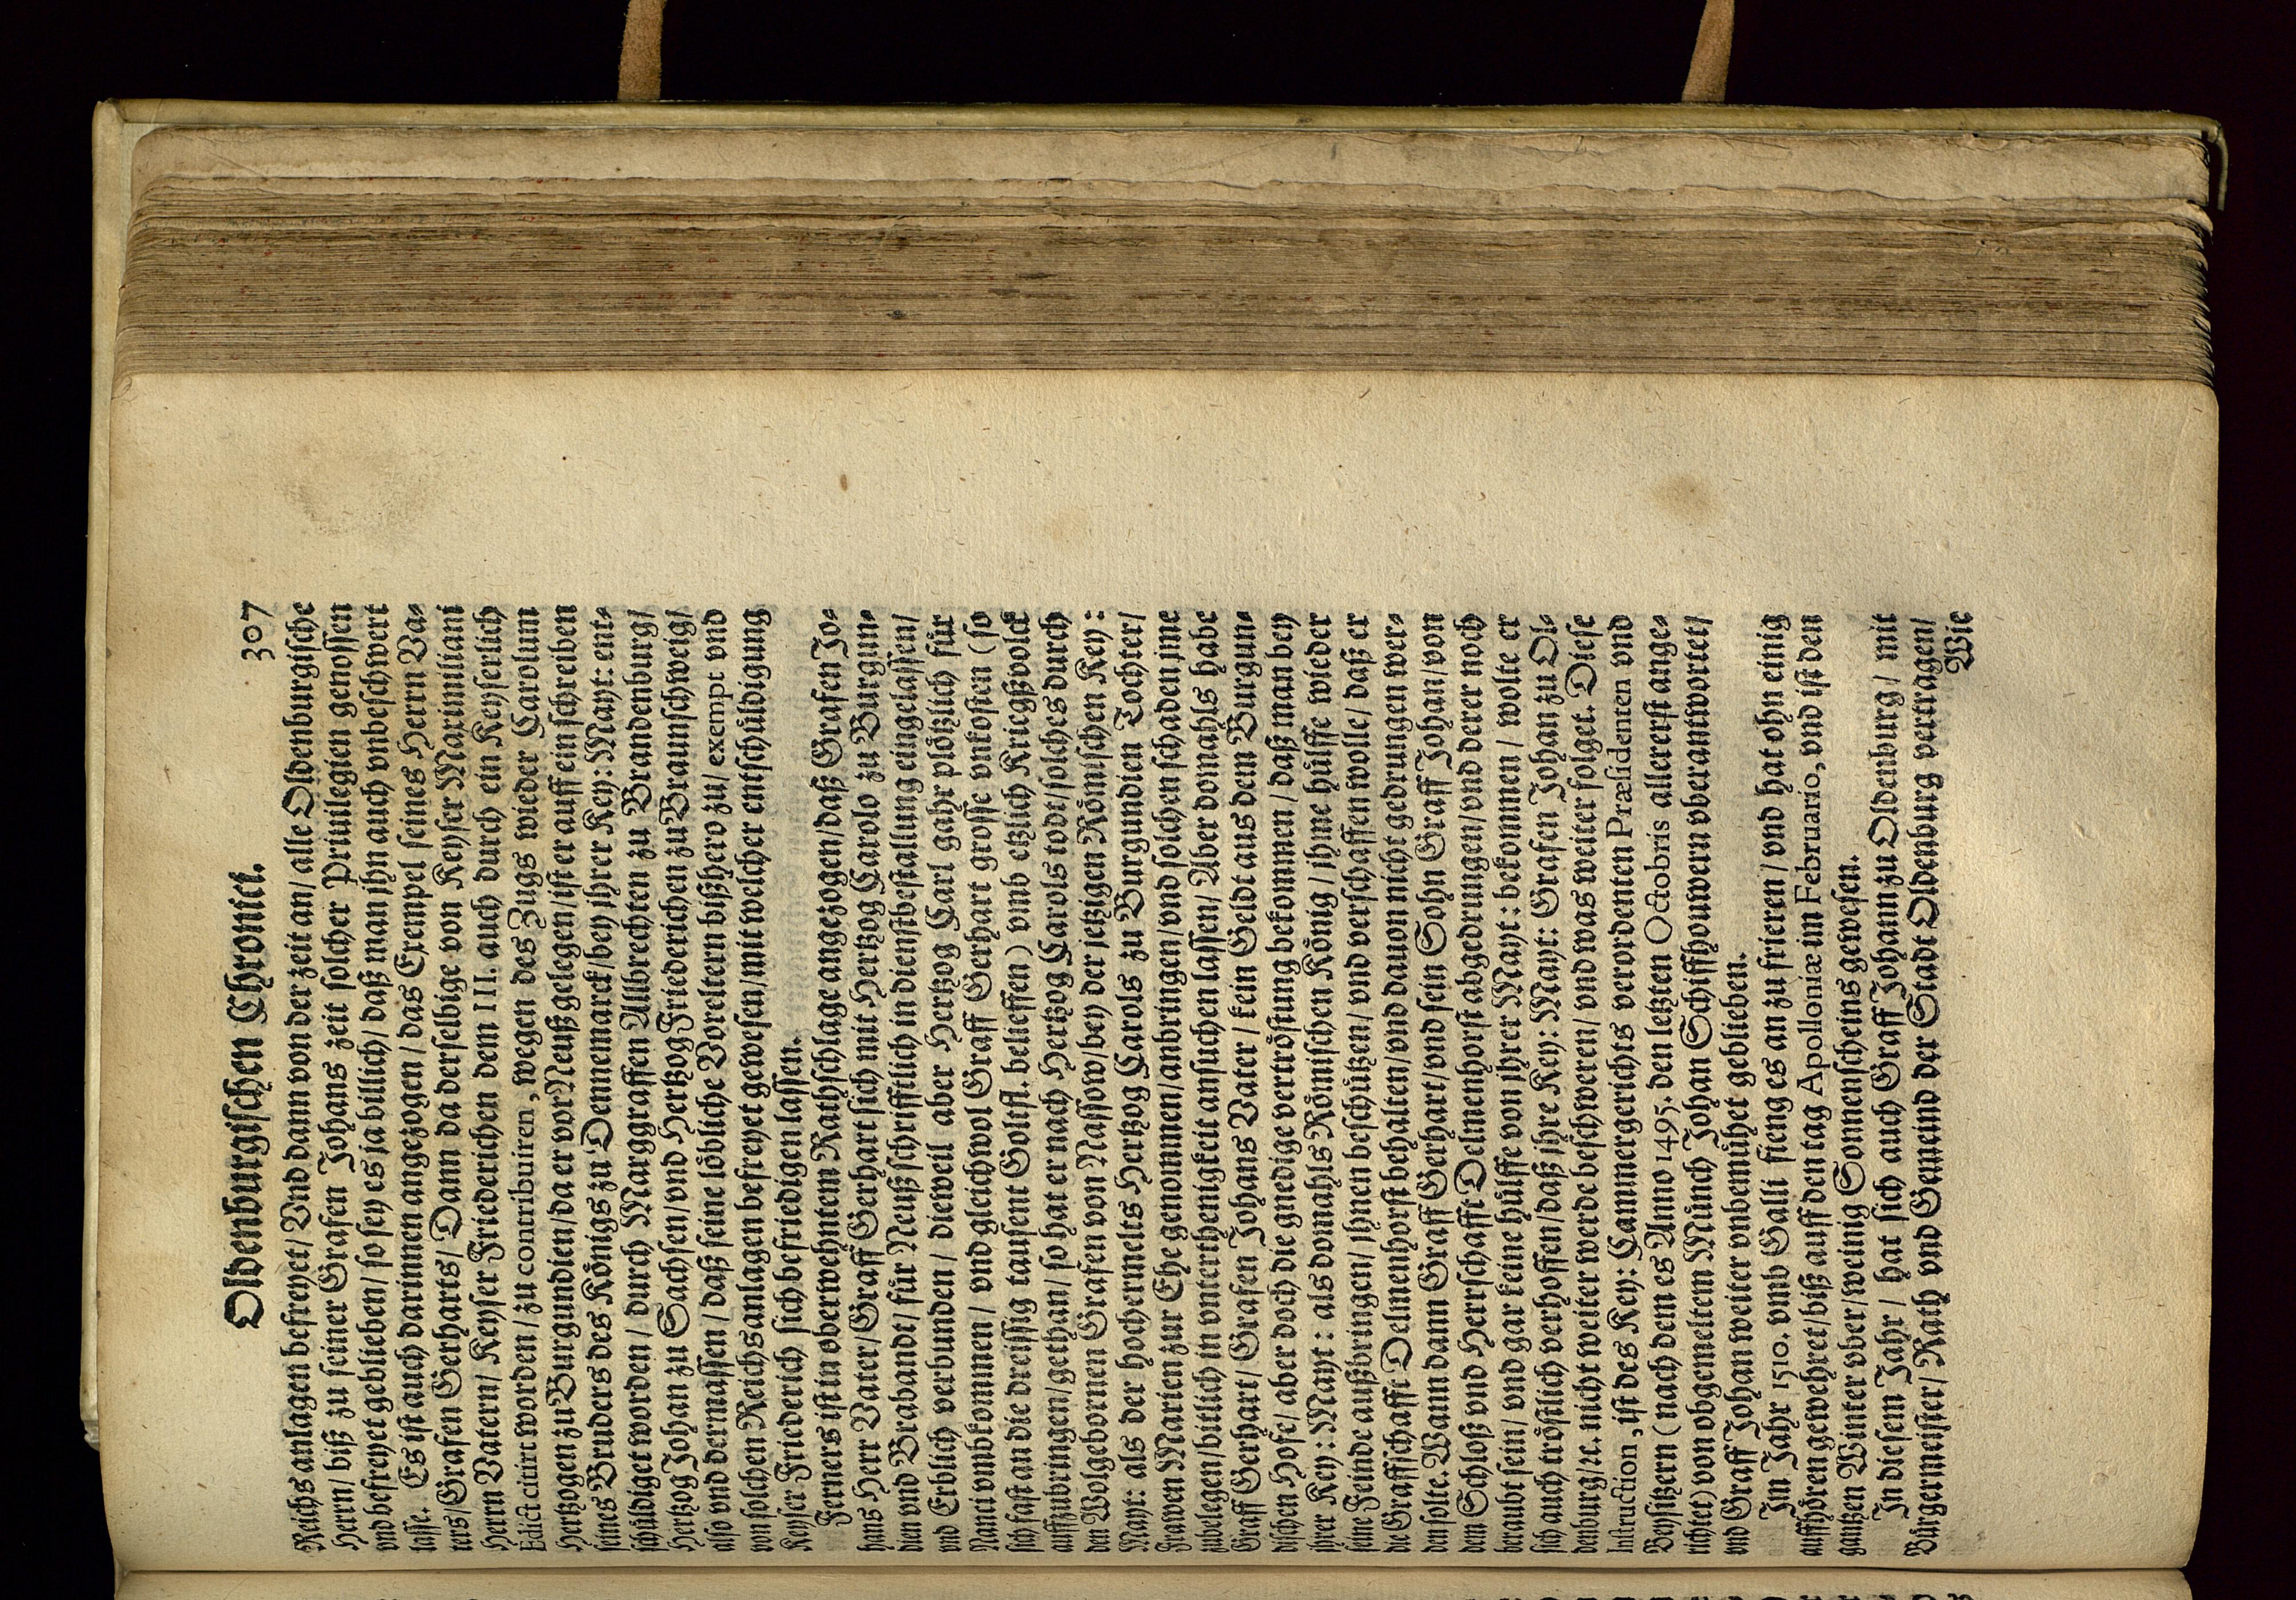 Oldenburgischen Chronick. 307
Reichs anlagen befreyet/ Vnd dann von der zeit an/ alle Oldenburgische
Herrn/ biß zu seiner Grafen Johans zeit solcher Priuilegien genossen
vnd befreyet geblieben/ so sey es ja billich/ daß man ihn auch vnbeschwert
lasse. Es ist auch darinnen angezogen/ das Exempel seines Herrn Va-
ters/ Grafen Gerharts/ Dann da derselbige von Keyser Maximiliani
Herrn Vatern/ Keyser Friederichen dem III. auch durch ein Keyserlich
Edict citirt worden/ zu contribuiren, wegen des Zugs wieder Carolum
Hertzogen zu Burgundien/ da er vor Neuß gelegen/ ist er auff ein schreiben
seines Bruders des Königs zu Dennemarck/ bey jhrer Key: Mayt: ent-
schüldiget worden/ durch Marggraffen Allbrechten zu Brandenburg/
Hertzog Johan zu Sachsen/ vnd Hertzog Friederichen zu Braunschweig/
also vnd dermassen/ daß seine löbliche Voreltern bißhero zu/ exempt vnd
von solchen Reichsanlagen befreyet gewesen/ mit welcher entschüldigung
Keyser Friederich sich befriedigen lassen.
Ferners ist in oberwehntem Rathschlage angezogen/ daß Grafen Jo-
hans Herr Vater/ Graff Gerhart sich mit Hertzog Carolo zu Burgun-
dien vnd Brabande/ für Neuß schrifftlich in dienstbestallung eingelassen/
vnd Erblich verbunden/ dieweil aber Hertzog Carl gahr plötzlich für
Nanci vmbkommen/ vnd gleichwol Graff Gerhart grosse vnkosten (so
sich fast an die dreissig tausent Goltfl. belieffen) vmb etzlich Kriegßvolck
auffzubringen/ gethan/ so hat er nach Hertzog Carols todt/ solches durch
den Wolgebornen Grafen von Nassow/ bey der jetzigen Römischen Key:
Mayt: als der hochermelts Hertzog Carols zu Burgundien Tochter/
Frawen Marien zur Ehe genommen/ anbringen/ vnd solchen schaden jme
zubelegen/ bitlich in vnterthenigkeit ansuchen lassen/ Aber domahls habe
Graff Gerhart/ Grafen Johans Vater/ kein Geldt aus dem Burgun-
dischen Hofe/ aber doch die gnedige vertröstung bekommen/ daß man bey
jhrer Key: Mayt: als domahls Römischen König/ ihme hülffe wieder
seine Feinde außbringen/ jhnen beschützen/ vnd verschaffen wolle/ daß er
die Graffschafft Delmenhorst behalten/ vnd dauon nicht gedrungen wer-
den solte. Wann dann Graff Gerhart/ vnd sein Sohn Graff Johan/ von
dem Schloß vnd Herrschafft Delmenhorst abgedrungen/ vnd derer noch
beraubt sein/ vnd gar keine hülffe von jhrer Mayt: bekommen/ wolte er
sich auch tröstlich verhoffen/ daß jhre Key: Mayt: Grafen Johan zu Ol-
denburg/ ꝛc. nicht weiter werde beschweren/ vnd was weiter folget. Diese
Instruction, ist des Key: Cammergerichts verordenten Præsidenten vnd
Beysitzern (nach dem es Anno 1495. den letzten Octobris allererst ange-
richtet) von obgemeltem Münch Johan Schiffhouwern vberantwortet/
vnd Graff Johan weiter vnbemühet geblieben.
Im Jahr 1510. vmb Galli fieng es an zu frieren/ vnd hat ohn einig
auffhören gewehret/ biß auff den tag Apolloniæ im Februario, vnd ist den
gantzen Winter vber/ weinig Sonnenscheins gewesen.
In diesem Jahr/ hat sich auch Graff Johann zu Oldenburg/ mit
Bürgermeister/ Rath vnd Gemeind der Stadt Oldenburg vertragen/
Wie